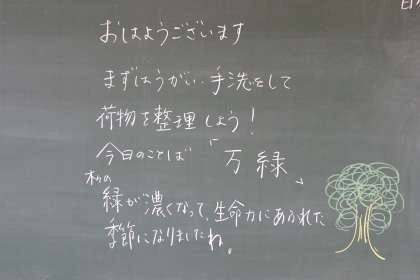 おはようございます
まずはうがい・手洗をして
荷物を整理しよう!
今日のことば「万緑」
木々の
緑が濃くなって、生命力にあふれた
季節になりましたね。